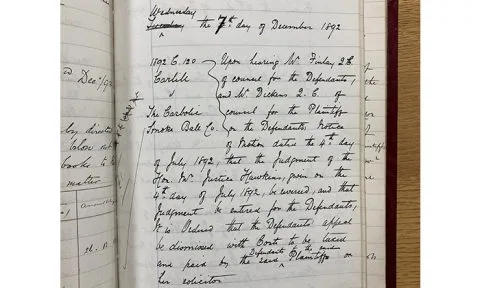 Wednesday
the 7th day of December 1892
1892 C. 120
Carlill
v
The Carbolic
Smoke Ball Co.
Upon hearing Mr Finlay Q.C.
of counsel for the Defendants,
and Mr Dickens Q.C. of
counsel for the Plaintiff
on the Defendants Notice
of Motion dated the 4th day
of July 1892, that the Judgment of the
Hon. Mr Justice Hawkins, given on the
4th day of July 1892, be reversed, and that
Judgment be entered for the Defendants,
It is Ordered that the Defendants appeal
be dismissed with Costs to be taxed
and paid by the said Defendants to the said Plaintiff or
her solicitor
Dec.
by direct
below not
books to
matter.